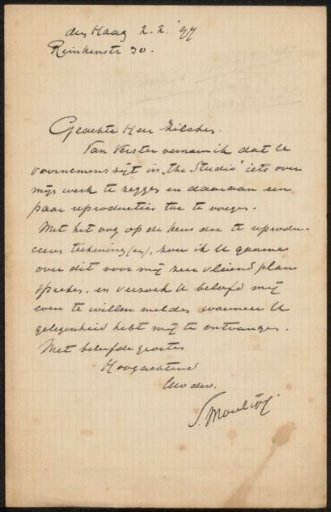 den Haag 2.2.'97
Reinkenstr 30.
Geachte Heer Zilcken.
Van Verster vernam ik dat U
voornemens zijt in „the Studio" iets over
mijn werk te zeggen en daaraan een
paar reproducties toe te voegen.
Met het oog op de keus der te reprodu-
ceeren teekening(en), zou ik U gaarne
over dit voor mij zeer vleiend plan
spreken, en verzoek U beleefd mij
even te willen melden wanneer U
gelegenheid hebt mij te ontvangen.
Met beleefde groeten
Hoogachtend
Uw dw.
S. Moulijn